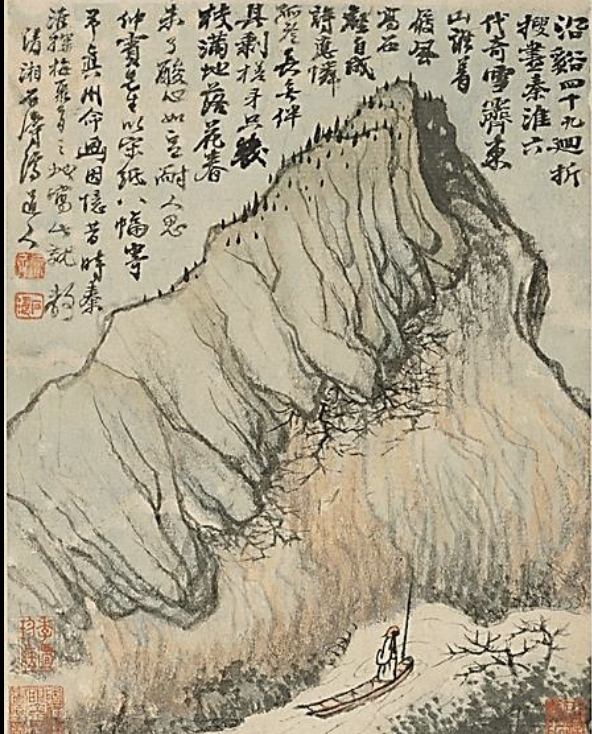 沿谿四十九迴折
搜盡秦淮六
代奇雪霽東
山誰着
屐風
高
壑自成
詩應憐
孤長無伴
具剩槎牙只幾
枝滿地落花春
未了酸心如豆耐人思
仲賓先生以宋紙八幅寄
真州命画因憶昔時秦
淮探梅之地寫此就教
清湘石濤濟道人